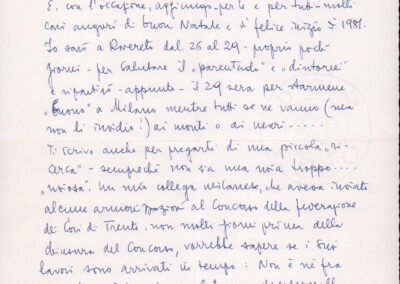 E, con l'occasione, aggiungo per te e per tutti molti
cari auguri di buon Natale e di felice inizio di 1981.
Io sarò a Rovereto dal 26 al 29 - proprio pochi
giorni - per salutare il "parentado" e "dintorni"
e ripartirò - appunto - il 29 sera per starmene
"buono" a Milano mentre tutti se ne vanno (ma
non li invidio!) ai monti o ai mari.....
Ti scrivo anche per pregarti di una piccola "ri-
cerca" - sempreché non sia una noia troppo....
"noiosa". Un mio collega milanese, che aveva inviato
alcune armonizzazioni al Concorso della federazione
dei Cori di Trento non molti giorni prima della
chiusura del Concorso, vorrebbe sapere se i suoi
lavori sono arrivati in tempo: Non è né fra